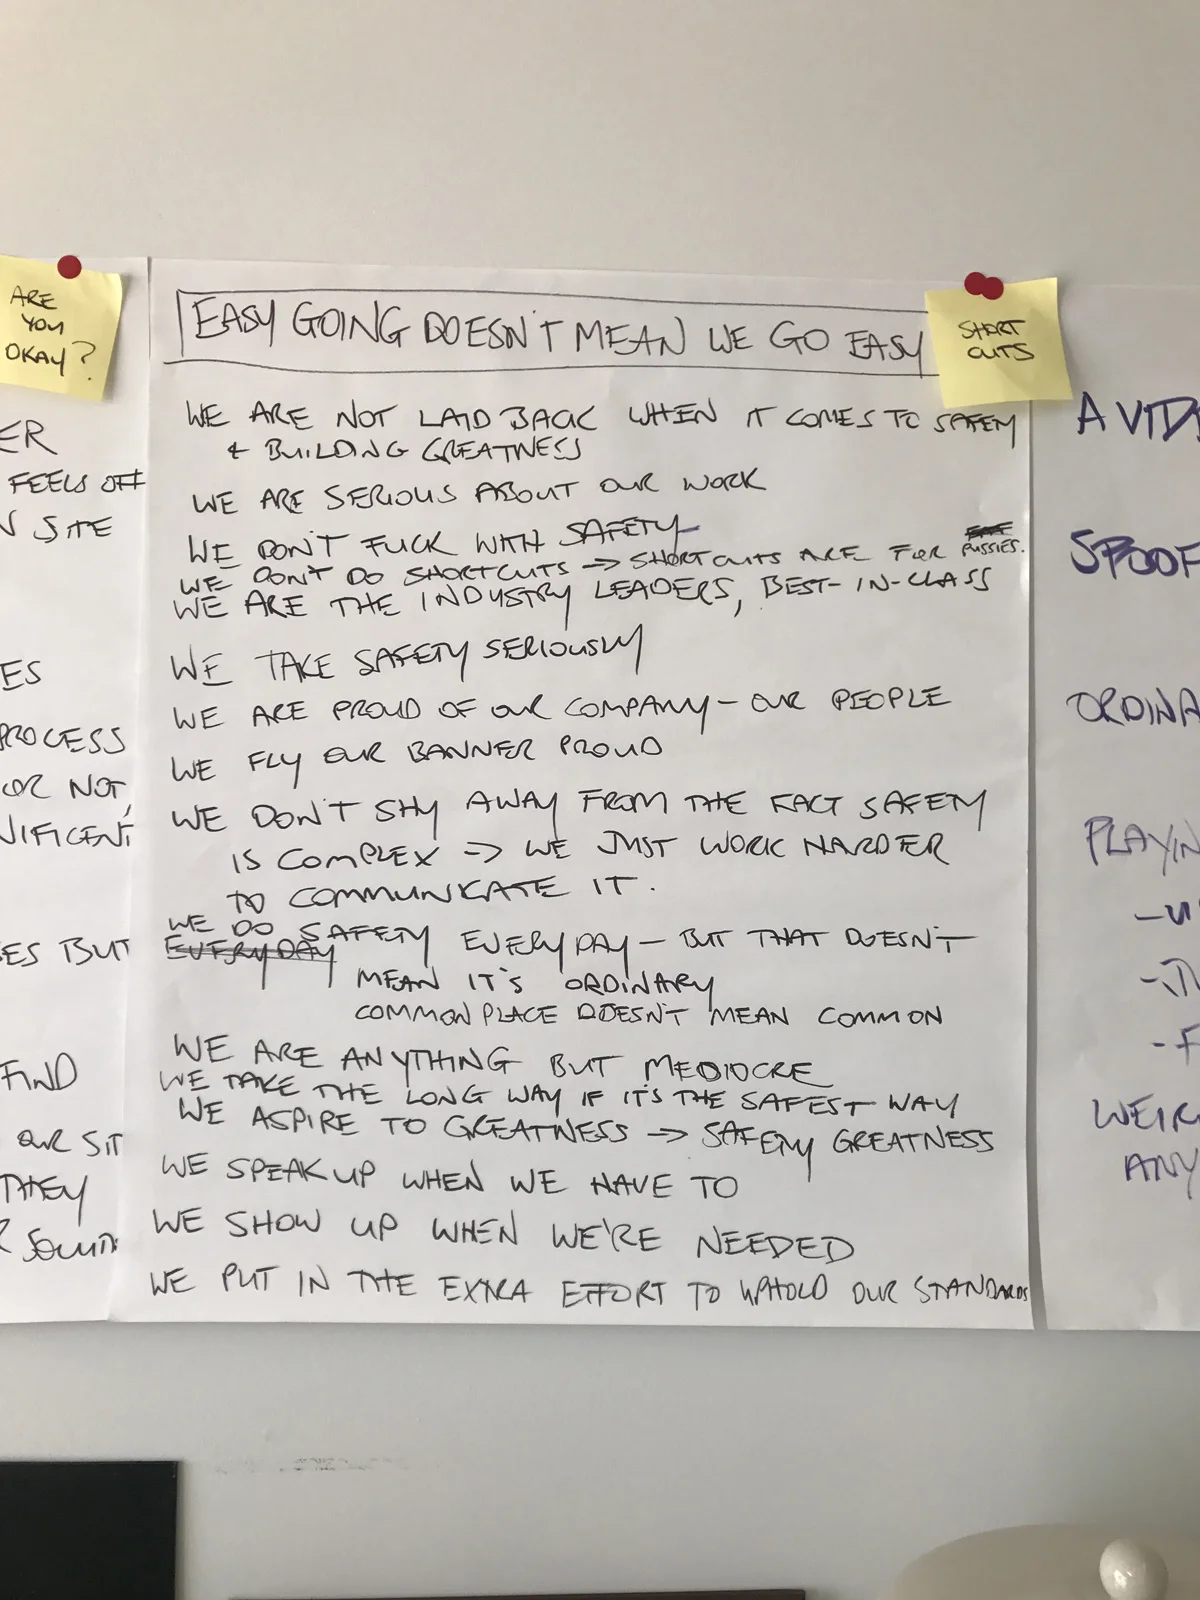 ARE
YOU
OKAY?
ER
FEELS OFF
N SITE
ES
PROCESS
OR NOT,
NIFICENT
ES BUT
FIND
OUR SIT
THEY
R SOLUTI
EASY GOING DOESN'T MEAN WE GO EASY
SHORT
CUTS
WE ARE NOT LAID BACK WHEN IT COMES TO SAFETY
& BUILDING GREATNESS
WE ARE SERIOUS ABOUT OUR WORK
WE DON'T FUCK WITH SAFETY
WE DON'T DO SHORTCUTS → SHORTCUTS ARE FOR PUSSIES.
WE ARE THE INDUSTRY LEADERS, BEST-IN-CLASS
WE TAKE SAFETY SERIOUSLY
WE ARE PROUD OF OUR COMPANY - OUR PEOPLE
WE FLY OUR BANNER PROUD
WE DON'T SHY AWAY FROM THE FACT SAFETY
IS COMPLEX → WE JUST WORK HARDER
TO COMMUNICATE IT.
WE DO SAFETY EVERYDAY - BUT THAT DOESN'T
EVERYDAY
MEAN IT'S ORDINARY
COMMON PLACE DOESN'T MEAN COMMON
WE ARE ANYTHING BUT MEDIOCRE
WE TAKE THE LONG WAY IF IT'S THE SAFEST WAY
WE ASPIRE TO GREATNESS → SAFETY GREATNESS
WE SPEAK UP WHEN WE HAVE TO
WE SHOW UP WHEN WE'RE NEEDED
WE PUT IN THE EXTRA EFFORT TO UPHOLD OUR STANDARDS
A VID
SPOOF
ORDINA
PLAYIN
- F
WEIR
ANY